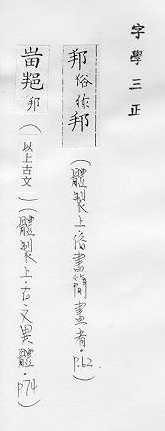 字學三正
邦俗作邦
(體製上·俗書簡畫者·p.62.)
邦
(以上古文)(體製上·古文異體·p74)